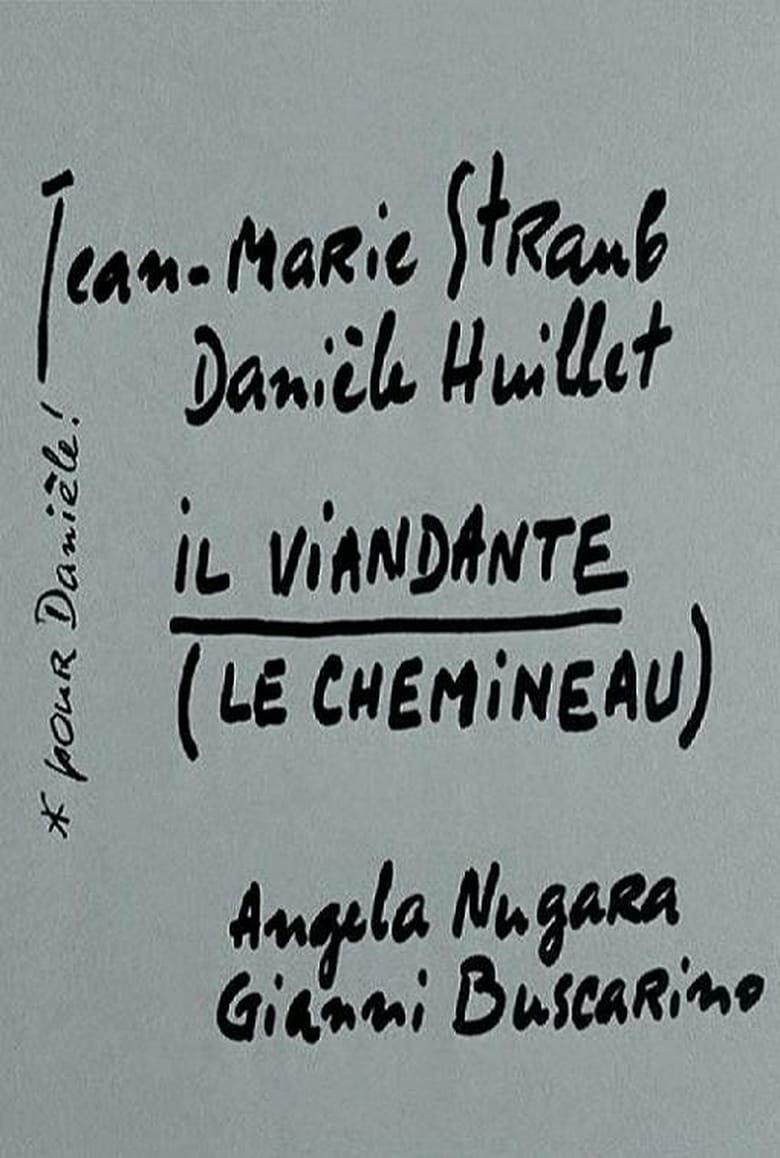 Jean-Marie Straub
Danièle Huillet
iL ViANDANTE
(LE CHEMiNEAU)
Angela Nugara
Gianni Buscarino
* pour Danièle!